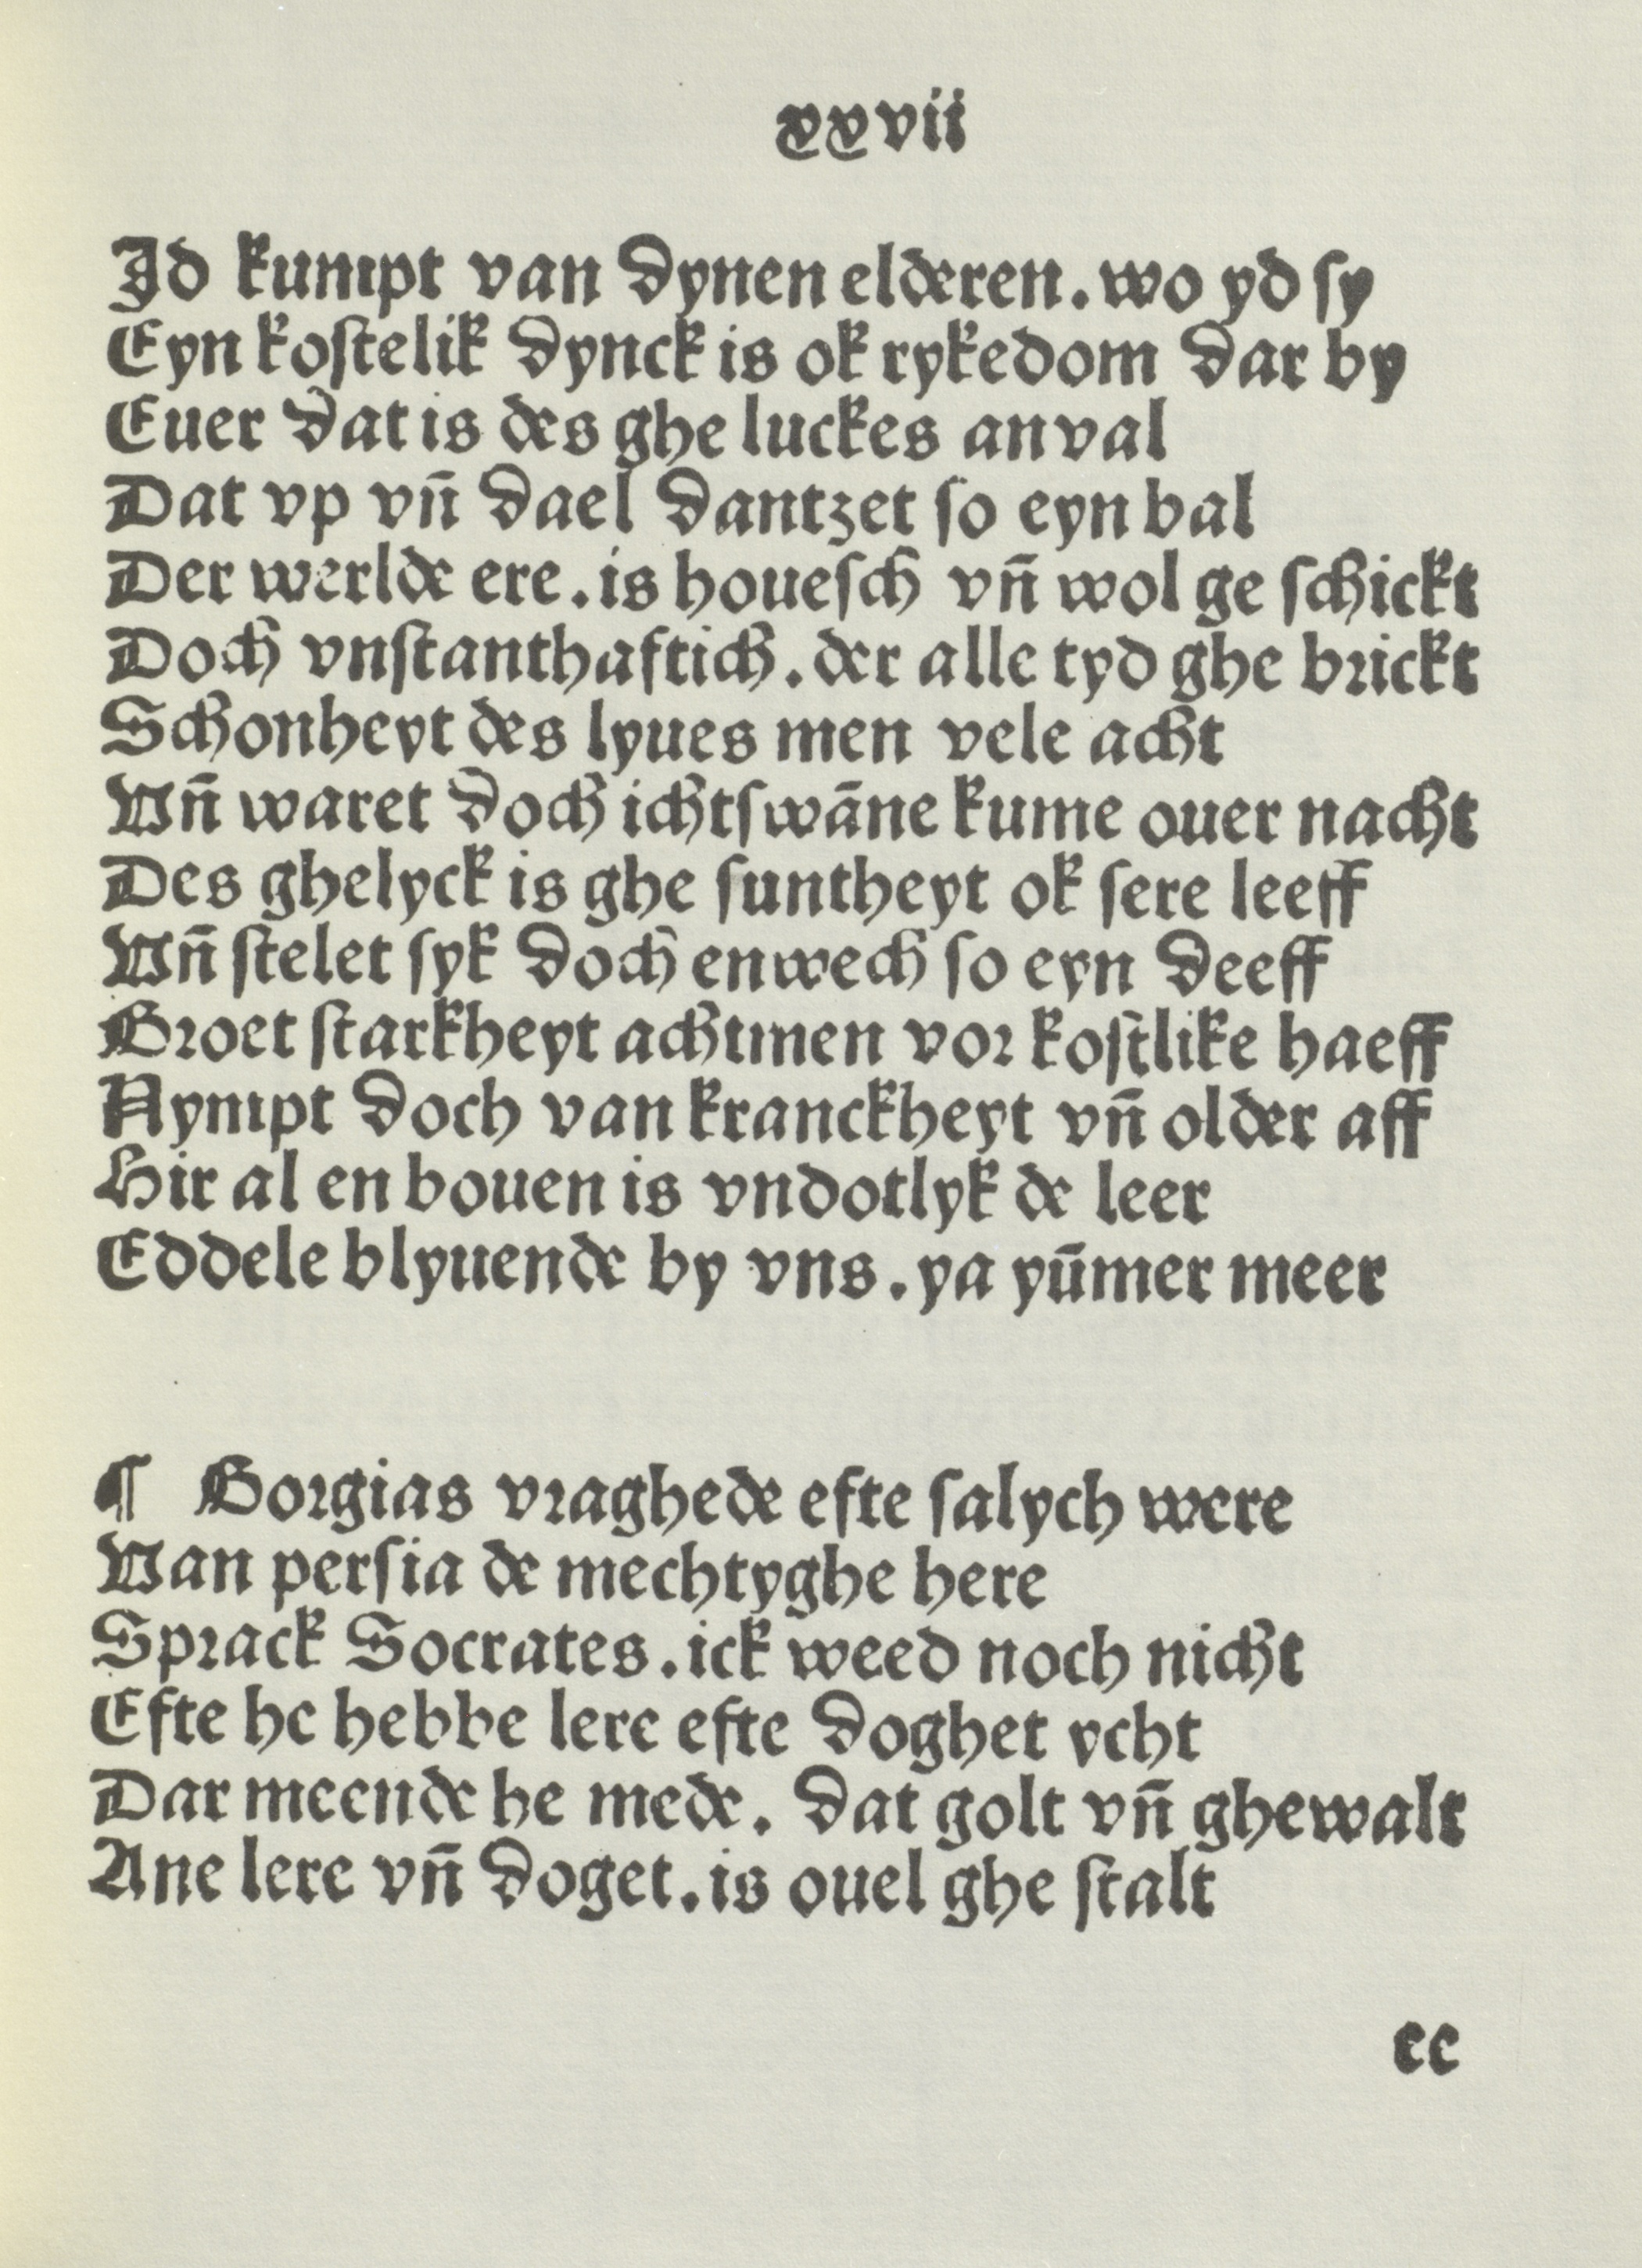 xxvii
Id kumpt van dynen elderen. wo yd sy
Eyn koſtelik dynck is ok rykedom dar by
Euer dat is des ghe luckes anval
Dat vp vn̄ dael dantzet ſo eyn bal
Der werlde ere. is houeſch vn̄ wol ge ſchickt
Doch vnſtanthaftich. der alle tyd ghe brickt
Schonheyt des lyues men vele acht
Vn̄ waret doch ichtſwāne kume ouer nacht
Des ghelyck is ghe ſuntheyt ok ſere leeff
Vn̄ ſtelet ſyk doch enwech ſo eyn deeff
Groet ſtarkheyt achtmen vor koſtlike haeff
Nympt doch van kranckheyt vn̄ older aff
Hir al en bouen is vndotlyk de leer
Eddele blyuende by vns. ya yūmer meer
¶ Gorgias vraghede efte ſalych were
Van perſia de mechtyghe here
Sprack Socrates. ick weed noch nicht
Efte he hebbe lere efte doghet ycht
Dar meende he mede. dat golt vn̄ ghewalt
Ane lere vn̄ doget. is ouel ghe ſtalt
cc